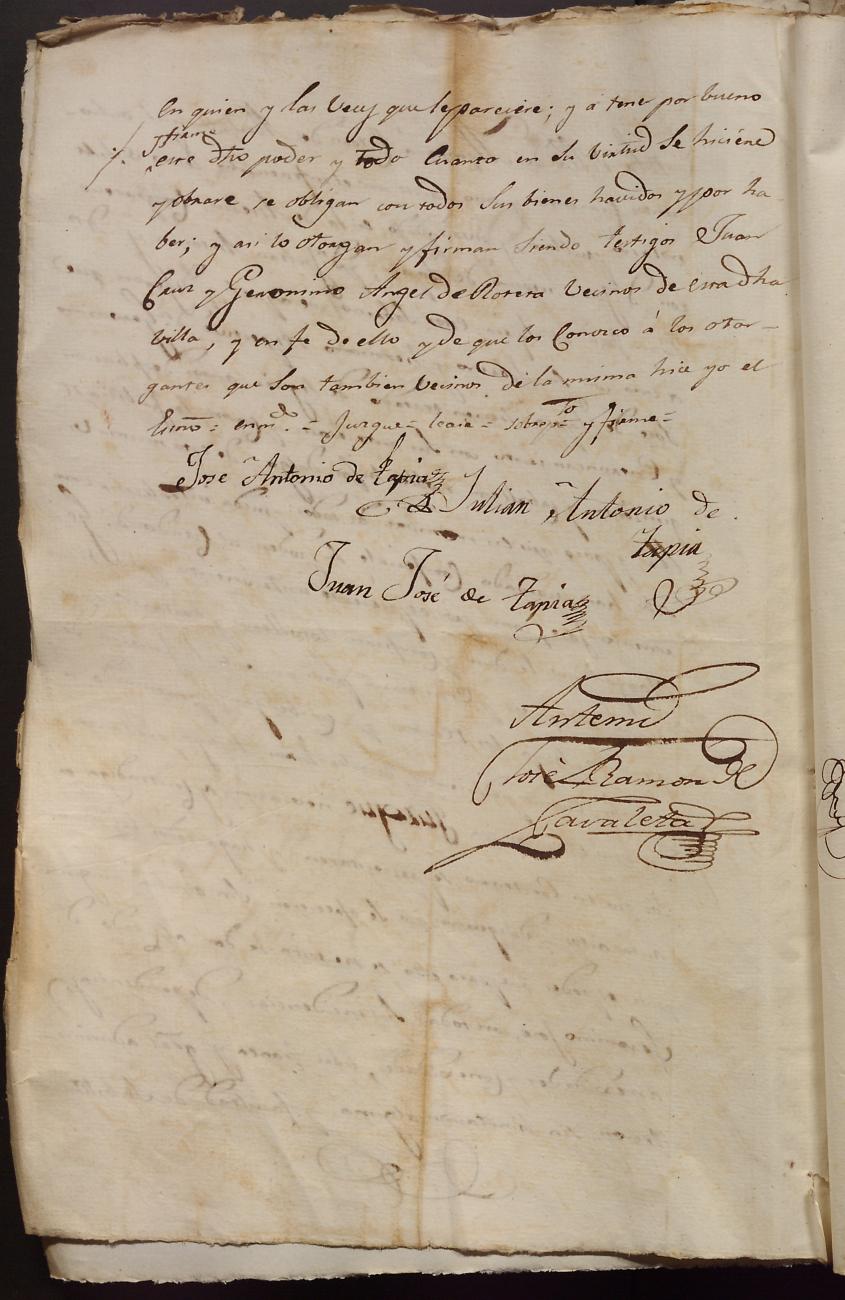 en quien y las veces que le pareciere; y á tener por bueno
y firme
este dho poder y todo Cuanto en su virtud se hiciere
y obrare se obligan con todos sus bienes havidos y por ha
ber; y asi lo otorgan y firman siendo testigos Juan
Cruz y Geronimo Angel de Rotera Vecinos de esta dha
villa, y en fe de ello y de que los Conozco á los otor-
gantes que son tambien Vecinos de la misma hice yo el
Essno = enmdo. = Juzgue = lease = sobrepto y firme =
Jose Antonio de Tapia
Julian Antonio de
Tapia
Juan José de Tapia
Antemi
José Ramon de
Zavaleta